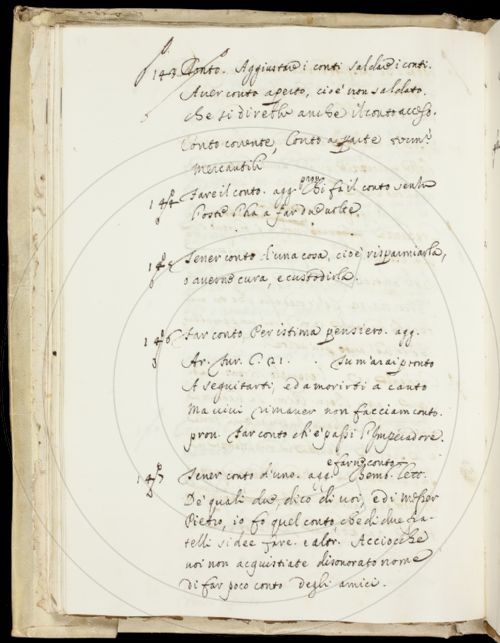 143 Conto. Aggiustare i conti saldare i conti.
Aver conto aperto, cioè non saldato.
che si direbbe anche il conto acceso.
Conto corrente, Conto a parte term.
mercantili
144 Fare il conto. agg. prov. Chi fa il conto senza
l'oste l'ha a far due volte.
145 Tener conto d'una cosa, cioè risparmiarla,
o averne cura, e custodirla.
146 Far conto Per istima pensiero. agg.
Ar. Fur. C. 21. Tu m'avrai pronto
A seguitarti, ed a morirti a canto
Ma vivi rimaner non facciam conto.
prov. Far conto ch'e' passi l'Imperadore.
147 Tener conto d'uno. agg. e farne conto Bemb. lett.
De' quali due dico di voi, e di Messer
Pietro, io fo quel conto, che di due fra-
telli si dee fare. e altr. Acciocchè
voi non acquistiate disonorato nome
di far poco conto degli amici.